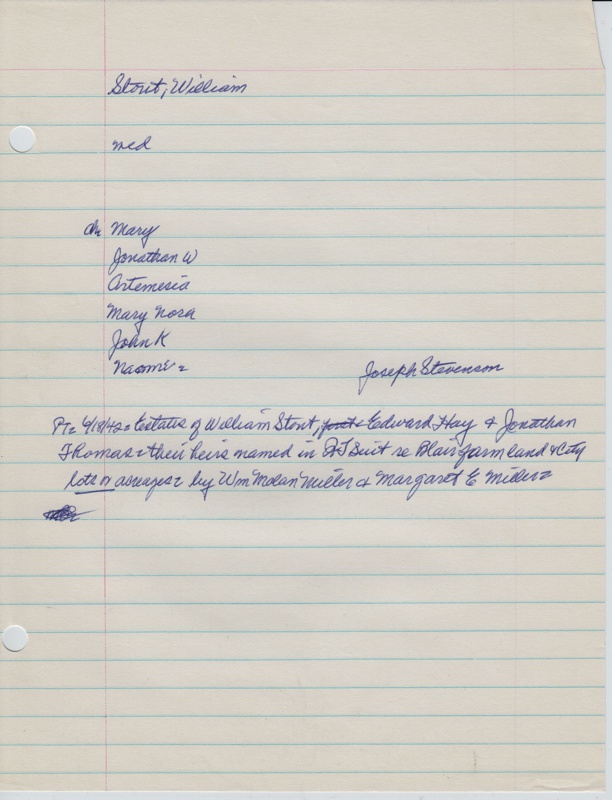 Stout, William
med
ch Mary
Jonathan W
Artemesia
Mary Nora
John K
Naomi =
Joseph Stevenson
Estates of William Stout, Edward Hay & Jonathan
Thomas & their heirs named in QT Suit re Blair farm land & City
lots or acreages = by Wm Molan Miller & Margaret E Miller =